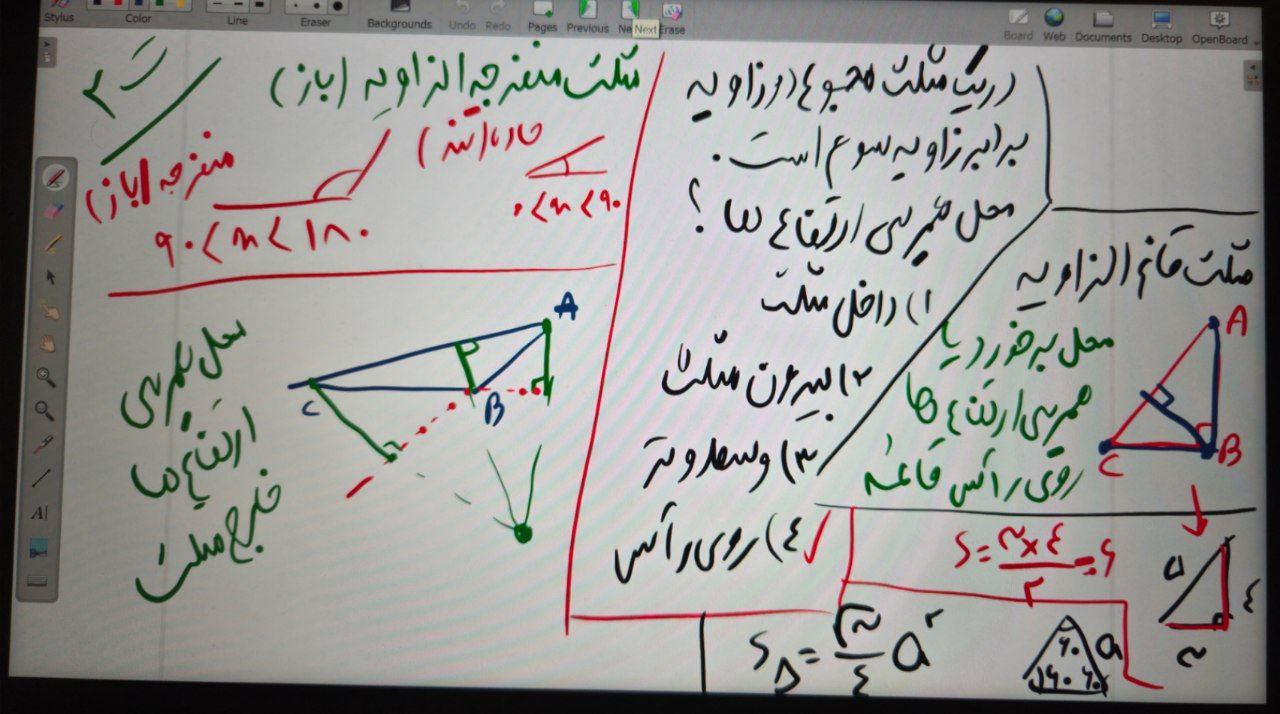 Stylus
Color
Line
Eraser
Backgrounds
Undo
Redo
Pages
Previous
Next
Erase
Board
Web
Documents
Desktop
OpenBoard
در یک مثلث مجموع دو زاویه
برابر زاویه سوم است.
محل همرسی ارتفاع ها ؟
۱) داخل مثلث
۲) بیرون مثلث
۳) وسط وتر
٤) روی رأس
مثلث قائم الزاویه
محل برخورد یا
همرسی ارتفاع ها
روی رأس قائمه
A
B
C
S = ۳×٤ / ۲ = ۶
۵
٤
۳
S△ = √۳ / ٤ a۲
۶۰
۶۰ ۶۰
a
مثلث منفرجه الزاویه (باز)
حاده (تند)
۰<x<۹۰
منفرجه (باز)
۹۰<x<۱۸۰
A
B
C
محل همرسی
ارتفاع ها
خارج مثلث
A